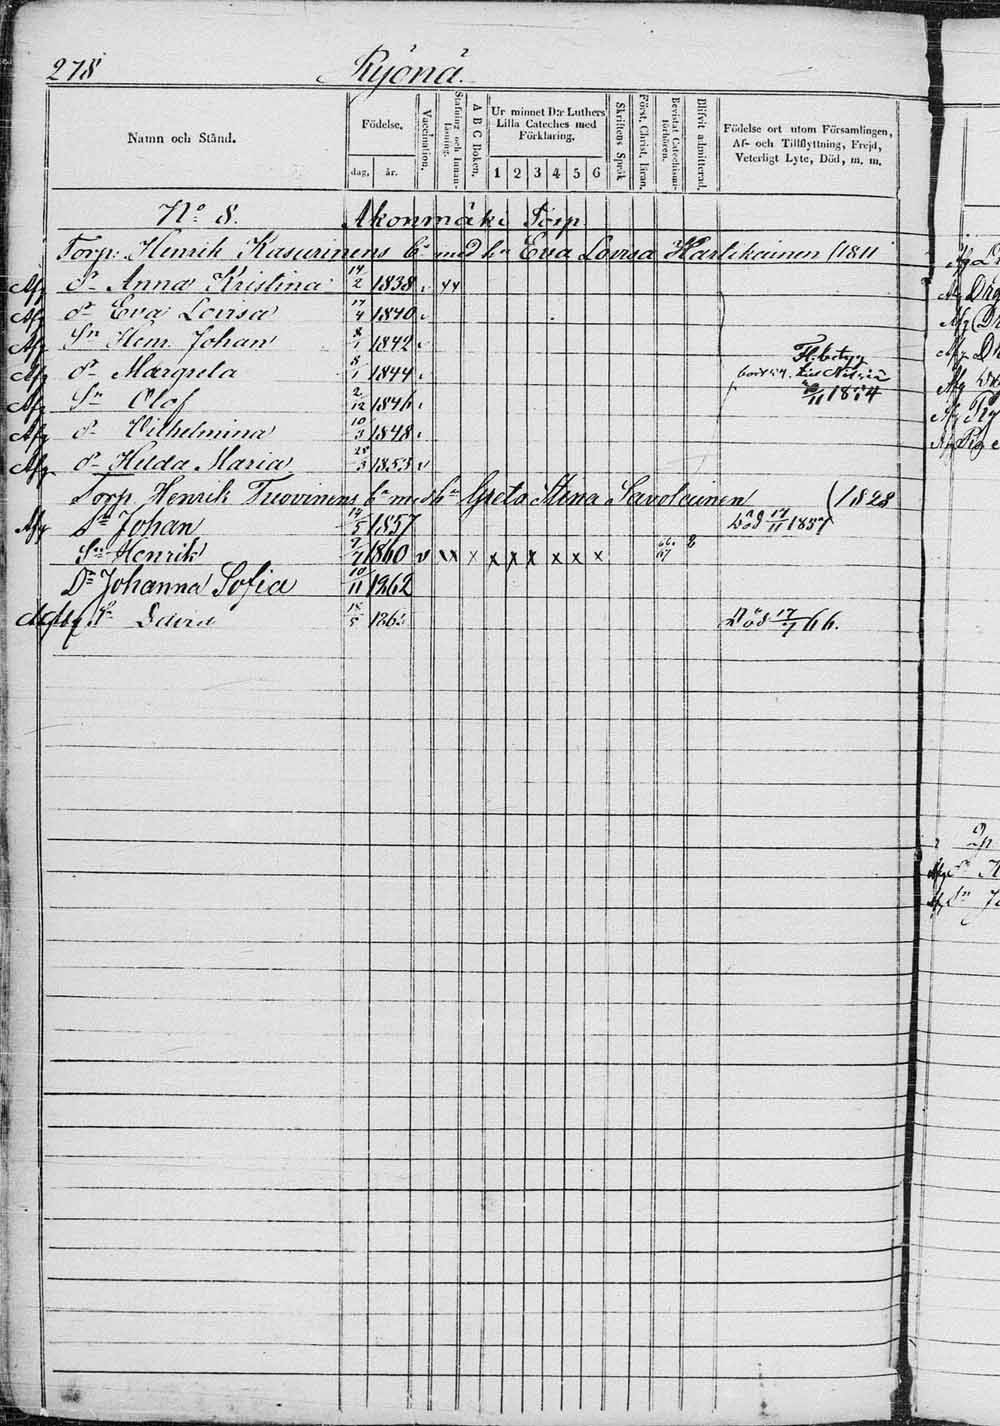 278 Ryönä.
Namn och Stånd.
Födelse.
dag. år.
Vaccination.
Stafning och Innanläsning.
A B C Boken.
Ur minnet D:r Luthers Lilla Cateches med Förklaring.
1 2 3 4 5 6
Skriftens Språk
Först. Christ. Läran.
Bevistat Catechismiförhören.
Blifvit admitterad.
Födelse ort utom Församlingen, Af- och Tillflyttning, Frejd, Veterligt Lyte, Död, m. m.
No 8. Akonmäki Torp
Torp: Henrik Kasurinens bn med hu Eva Lovisa Karhkainen (1811
Afg dr Anna Kristina 14/2 1838
Afg dr Eva Lovisa 17/4 1840
Afg Sn Henr. Johan 8/1 1842
Afg dr Margreta 8/1 1844 Fl. betyg till Nilsiä /11 1874
Afg Sn Olof 2/12 1846
Afg dr Wilhelmina 10/3 1848
Afg dr Hilda Maria 28/3 1853 v
Torp. Henrik Tuovinens bn med hu Greta Stina Savolainen (1828
Afg Sn Johan 14/5 1857 Död 17/11 1857
Sn Henrik 2/7 1860 v x x x x x x x 66. 67
Dr Johanna Sofia 10/11 1862
Sn 18/5 Död 17/7 66.